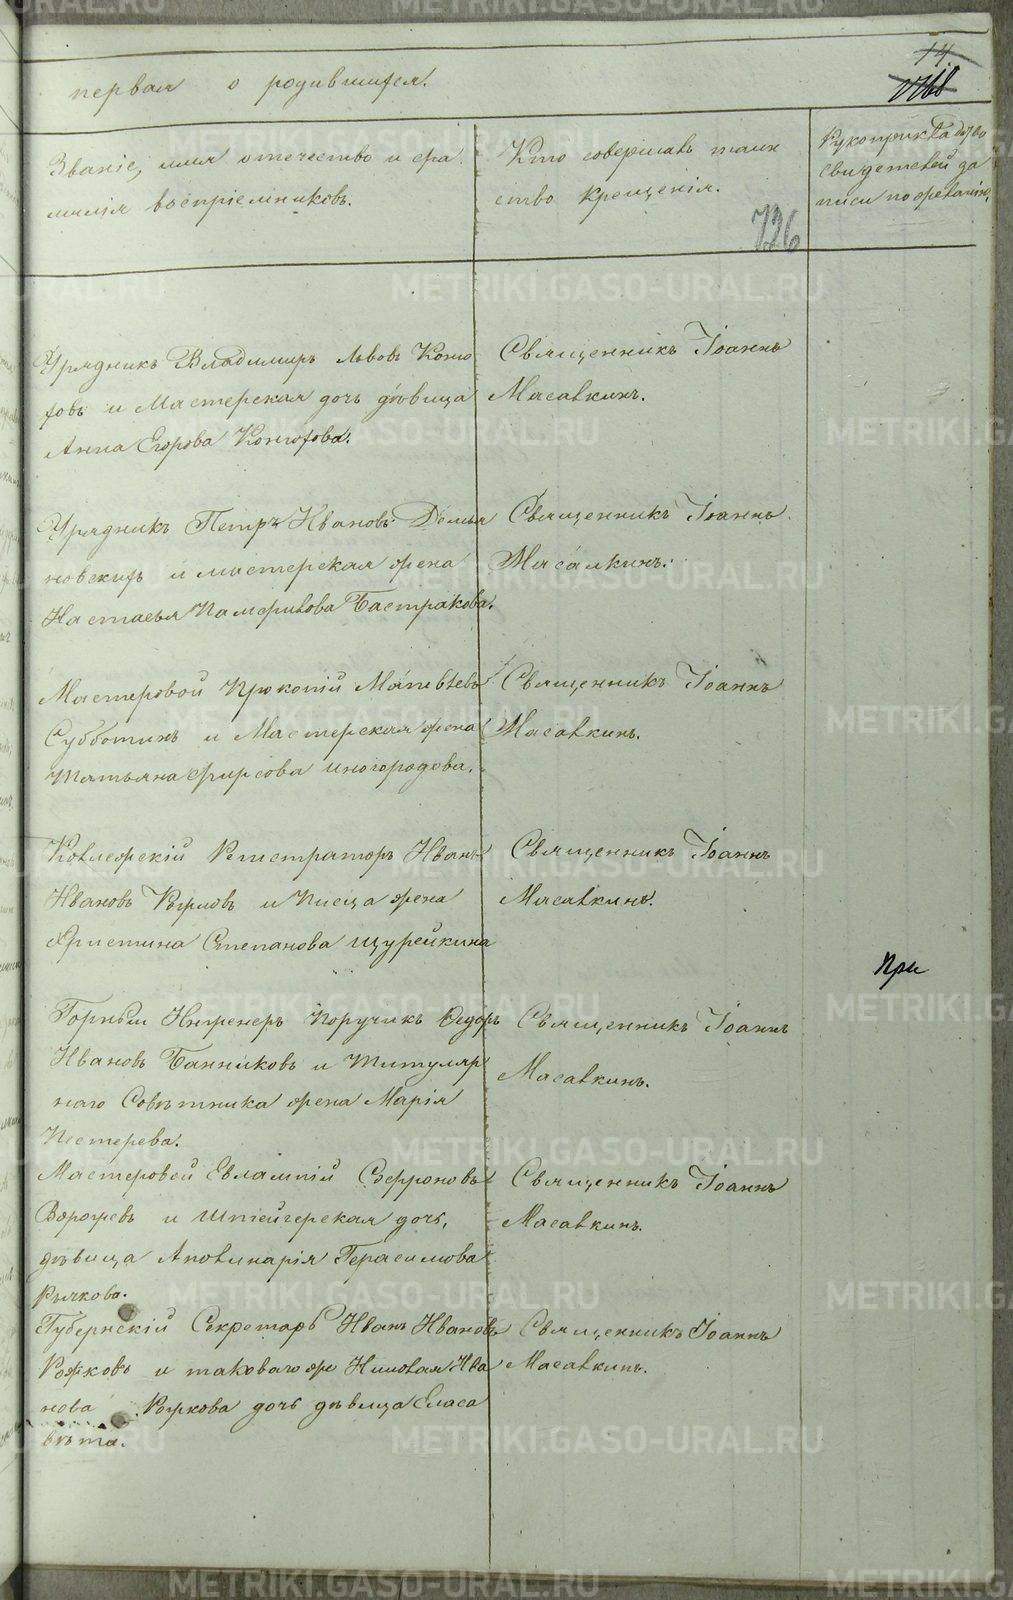 первая о родившихся.
14
Званіе, имя отечество и фа
милія воспріемниковъ.
Кто совершалъ таин
ство крещенія.
726
Рукоприкладство
свидетелей за
писи по желанію,
Урядникъ Владимиръ Львовъ Коню
ховъ и Мастерская дочь дѣвица
Анна Егорова Конюхова.
Священникъ Іоаннъ
Масалкинъ.
Урядникъ Петръ Ивановъ Демья
новскихъ и мастерская жена
Настасья Памфилова Бастракова.
Священникъ Іоаннъ
Масалкинъ.
Мастеровой Прокопій Матвѣевъ
Субботинъ и Мастерская жена
Татьяна Фирсова Иногородова.
Священникъ Іоаннъ
Масалкинъ.
Коллежскій Регистраторъ Иванъ
Ивановъ и Писца жена
Христина Степанова Щурейкина
Священникъ Іоаннъ
Масалкинъ.
При
Горный Инженеръ Поручикъ Ѳедоръ
Ивановъ Банниковъ и Титуляр
наго Совѣтника жена Марія
Пестерева.
Священникъ Іоаннъ
Масалкинъ.
Мастеровой Евлампій Софроновъ
и Штейгерская дочь,
дѣвица Аполинарія Герасимова
Рычкова.
Священникъ Іоаннъ
Масалкинъ.
Губернскій Секретарь Иванъ Ивановъ
Рожковъ и таковаго же Николая Ива
нова Рожкова дочь дѣвица Елиса
вѣта.
Священникъ Іоаннъ
Масалкинъ.
METRIKI.GASO-URAL.RU